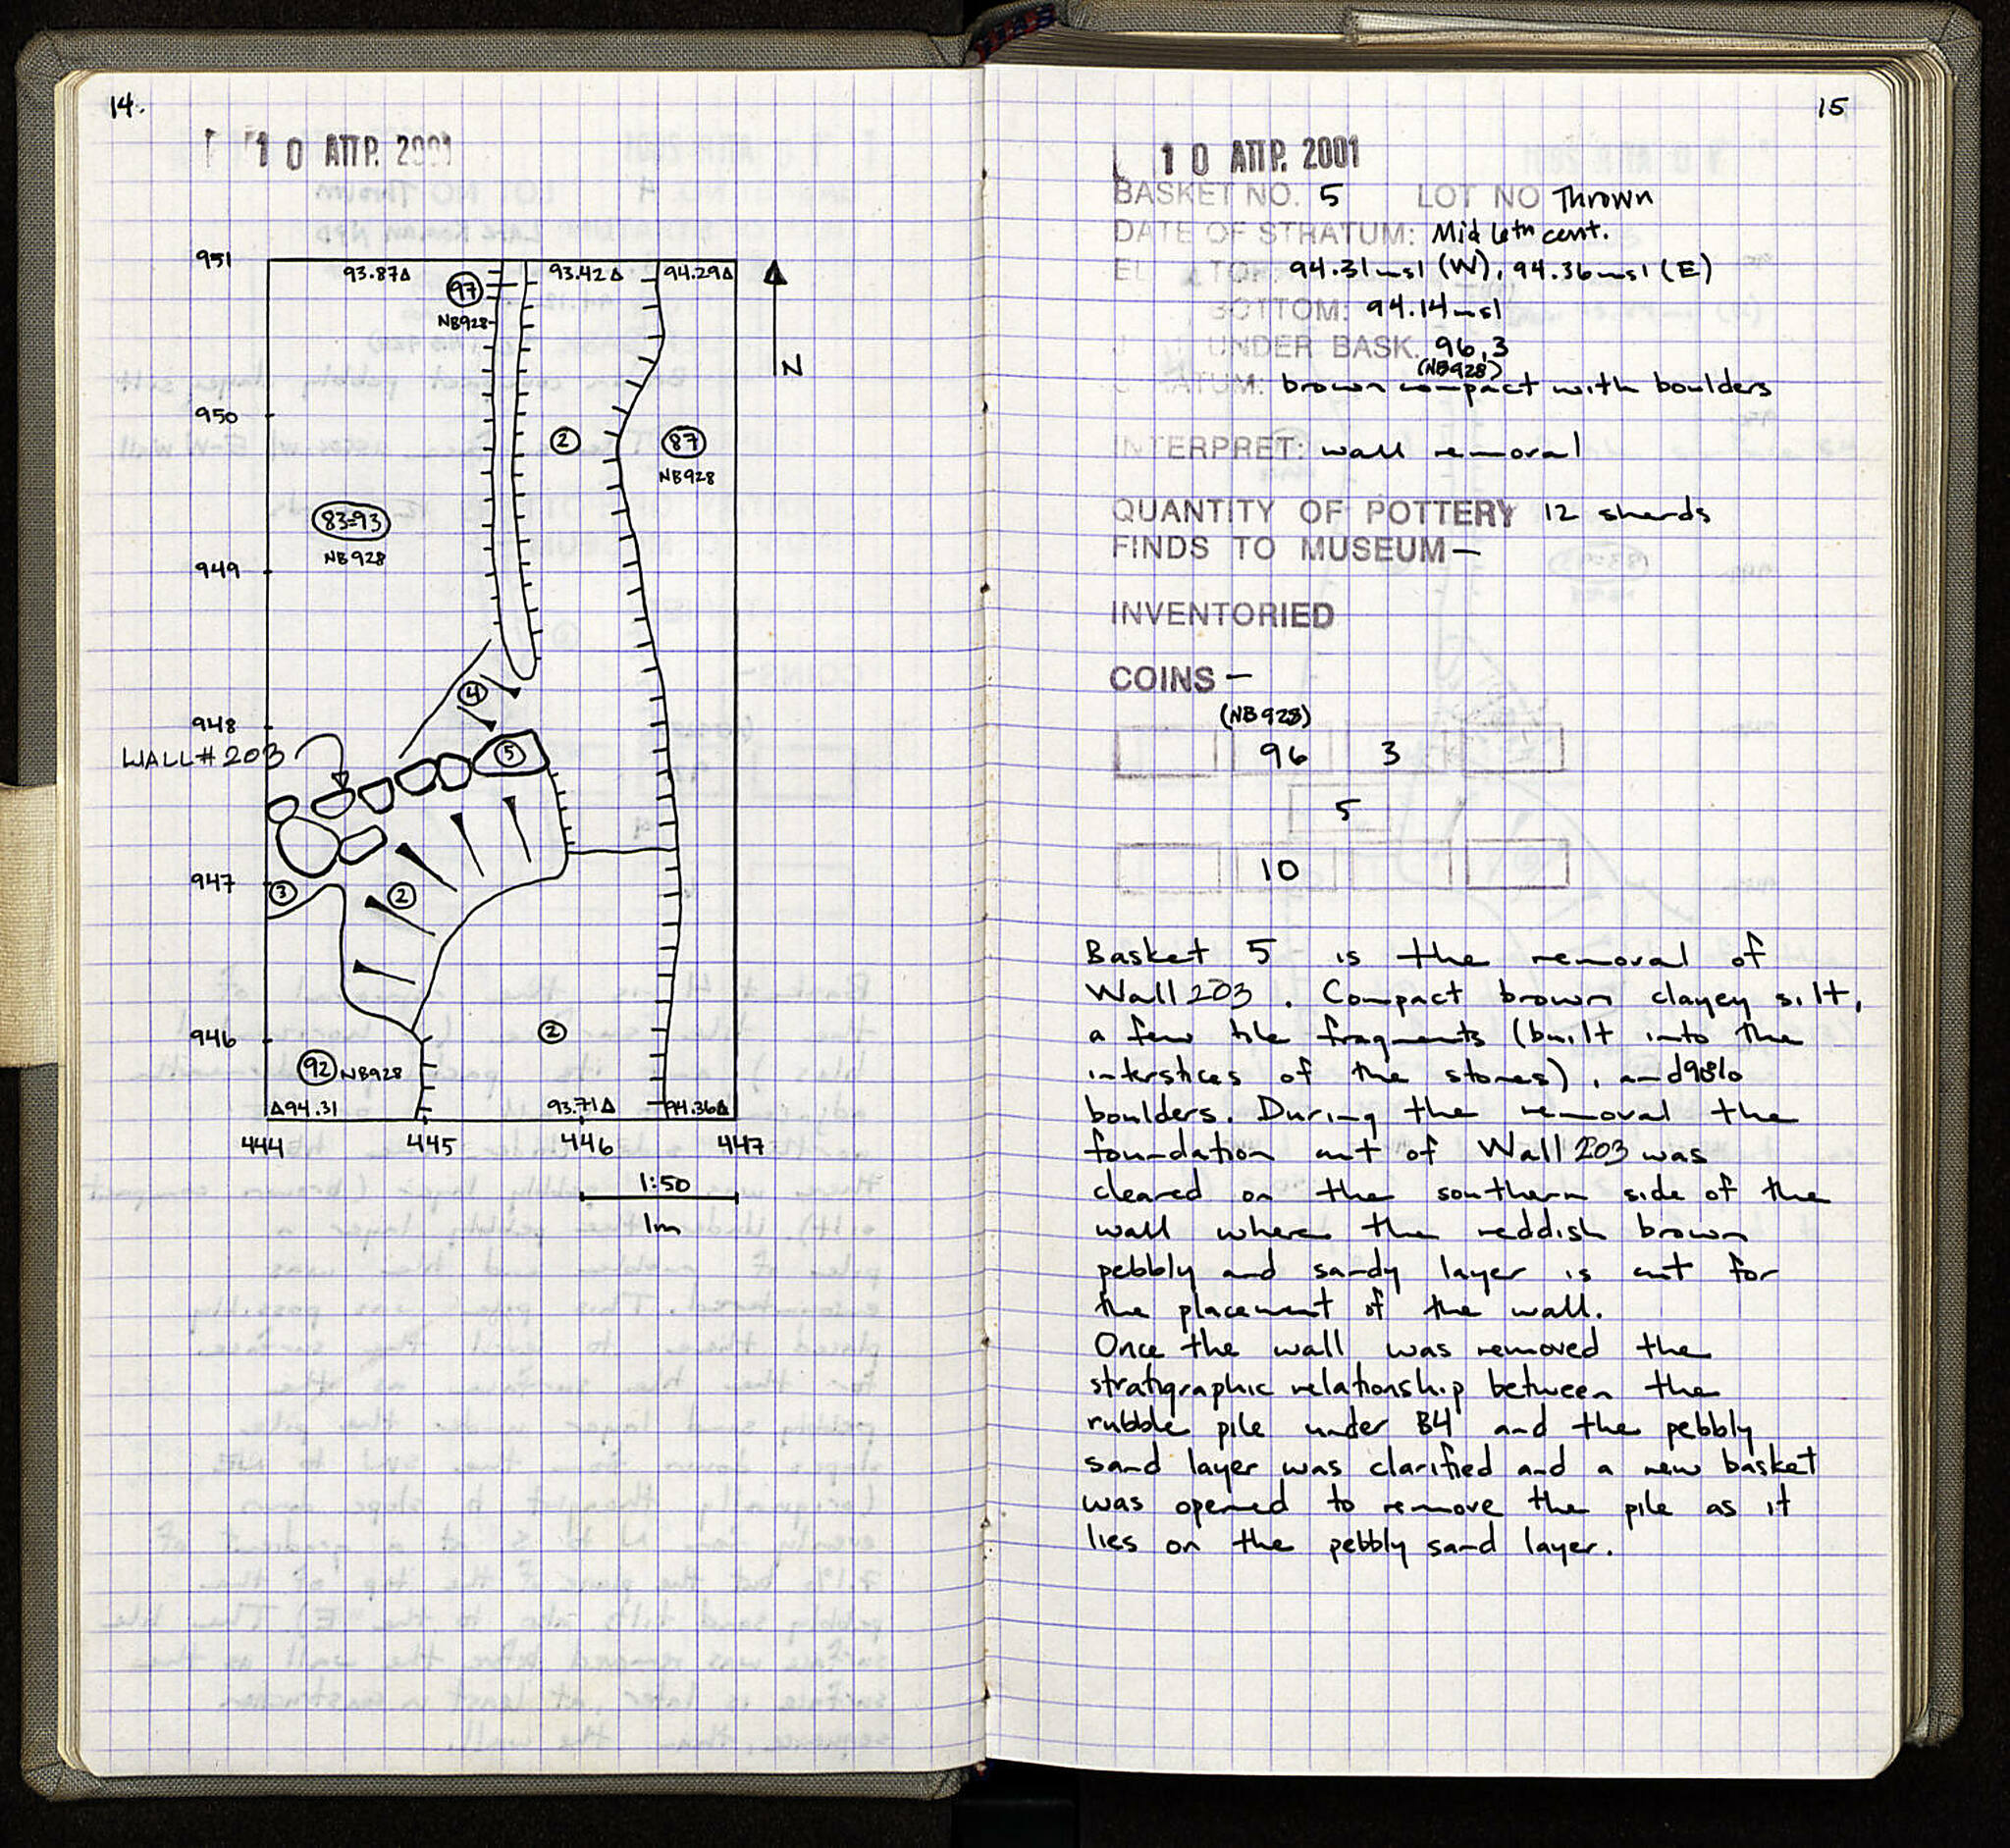 14.
10 ΑΠΡ. 2001
951
93.87Δ
93.42Δ
94.29Δ
97
NB928
N
950
2
87
NB928
83=93
NB928
949
4
948
WALL # 203
5
947
3
2
946
2
92 NB928
Δ94.31
93.71Δ
94.36Δ
444 445 446 447
1:50
1m
15
10 ΑΠΡ. 2001
BASKET NO. 5 LOT NO Thrown
DATE OF STRATUM: Mid 6th cent.
TOP: 94.31msl (W), 94.36msl (E)
BOTTOM: 94.14msl
UNDER BASK. 96, 3
(NB928)
STRATUM: brown compact with boulders
INTERPRET: wall removal
QUANTITY OF POTTERY 12 sherds
FINDS TO MUSEUM —
INVENTORIED
COINS —
(NB928)
96 3
5
10
Basket 5 is the removal of
Wall 203. Compact brown clayey silt,
a few tile fragments (built into the
interstices of the stones), and 90%
boulders. During the removal the
foundation cut of Wall 203 was
cleared on the southern side of the
wall where the reddish brown
pebbly and sandy layer is cut for
the placement of the wall.
Once the wall was removed the
stratigraphic relationship between the
rubble pile under B4 and the pebbly
sand layer was clarified and a new basket
was opened to remove the pile as it
lies on the pebbly sand layer.